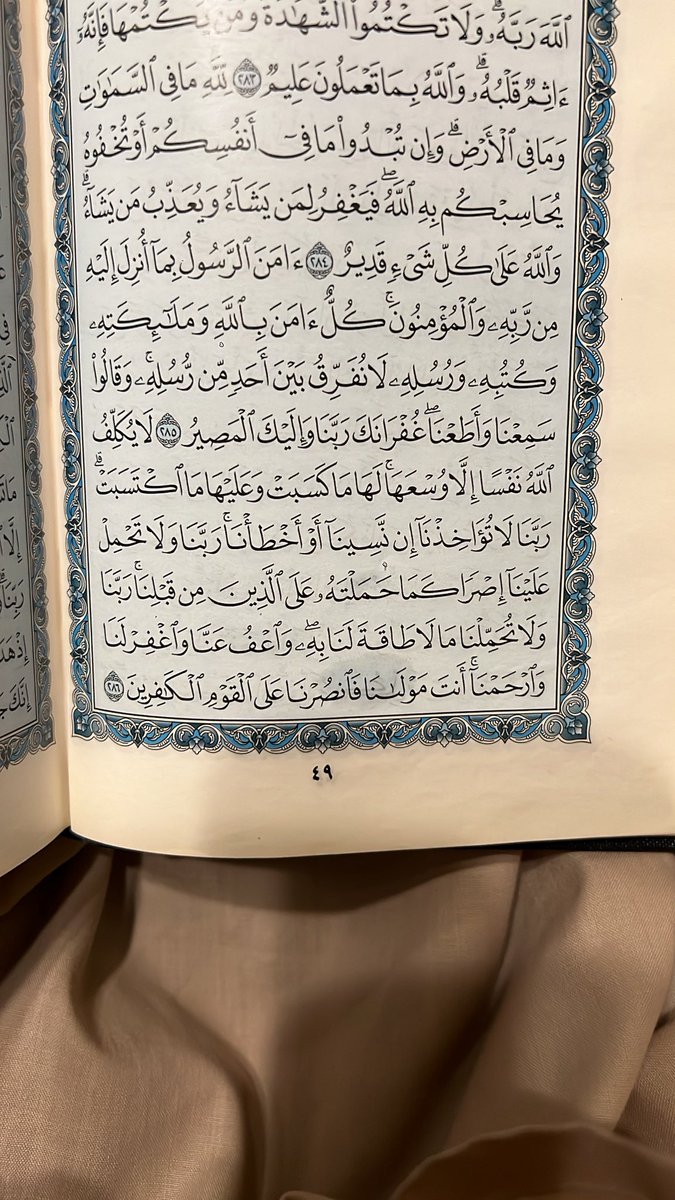 ٱللَّهَ رَبَّهُۥۗ وَلَا تَكْتُمُوا۟ ٱلشَّهَٰدَةَۚ وَمَن يَكْتُمْهَا فَإِنَّهُۥٓ
ءَاثِمٌ قَلْبُهُۥۗ وَٱللَّهُ بِمَا تَعْمَلُونَ عَلِيمٌ ٢٨٣ لِّلَّهِ مَا فِى ٱلسَّمَٰوَٰتِ
وَمَا فِى ٱلْأَرْضِۗ وَإِن تُبْدُوا۟ مَا فِىٓ أَنفُسِكُمْ أَوْ تُخْفُوهُ
يُحَاسِبْكُم بِهِ ٱللَّهُۖ فَيَغْفِرُ لِمَن يَشَآءُ وَيُعَذِّبُ مَن يَشَآءُۗ
وَٱللَّهُ عَلَىٰ كُلِّ شَىْءٍ قَدِيرٌ ٢٨٤ ءَامَنَ ٱلرَّسُولُ بِمَآ أُنزِلَ إِلَيْهِ
مِن رَّبِّهِۦ وَٱلْمُؤْمِنُونَۚ كُلٌّ ءَامَنَ بِٱللَّهِ وَمَلَٰٓئِكَتِهِۦ
وَكُتُبِهِۦ وَرُسُلِهِۦ لَا نُفَرِّقُ بَيْنَ أَحَدٍ مِّن رُّسُلِهِۦۚ وَقَالُوا۟
سَمِعْنَا وَأَطَعْنَاۖ غُفْرَانَكَ رَبَّنَا وَإِلَيْكَ ٱلْمَصِيرُ ٢٨٥ لَا يُكَلِّفُ
ٱللَّهُ نَفْسًا إِلَّا وُسْعَهَاۚ لَهَا مَا كَسَبَتْ وَعَلَيْهَا مَا ٱكْتَسَبَتْۗ
رَبَّنَا لَا تُؤَاخِذْنَآ إِن نَّسِينَآ أَوْ أَخْطَأْنَاۚ رَبَّنَا وَلَا تَحْمِلْ
عَلَيْنَآ إِصْرًا كَمَا حَمَلْتَهُۥ عَلَى ٱلَّذِينَ مِن قَبْلِنَاۚ رَبَّنَا
وَلَا تُحَمِّلْنَا مَا لَا طَاقَةَ لَنَا بِهِۦۖ وَٱعْفُ عَنَّا وَٱغْفِرْ لَنَا
وَٱرْحَمْنَآۚ أَنتَ مَوْلَىٰنَا فَٱنصُرْنَا عَلَى ٱلْقَوْمِ ٱلْكَٰفِرِينَ ٢٨٦
٤٩